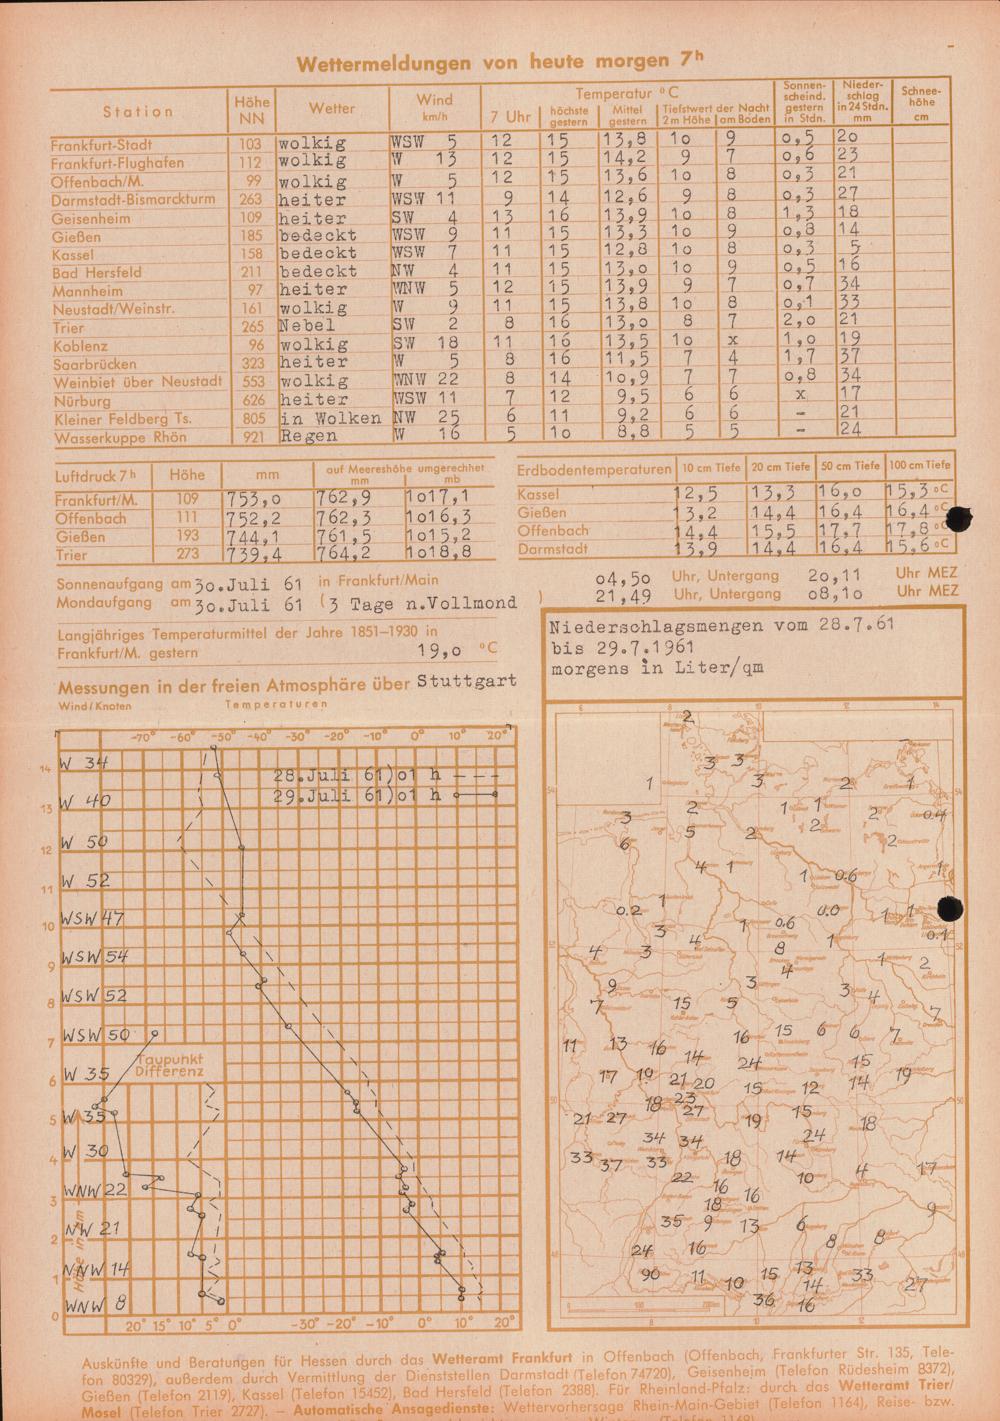 Wettermeldungen von heute morgen 7h
Station Höhe NN Wetter Wind km/h Temperatur °C Sonnen-scheind. gestern in Stdn. Nieder-schlag in 24 Stdn. mm Schnee-höhe cm
7 Uhr höchste gestern Mittel gestern Tiefstwert der Nacht 2 m Höhe am Boden
Frankfurt-Stadt 103 wolkig WSW 5 12 15 13,8 10 9 0,5 20
Frankfurt-Flughafen 112 wolkig W 13 12 15 14,2 9 7 0,6 23
Offenbach/M. 99 wolkig W 5 12 15 13,6 10 8 0,3 21
Darmstadt-Bismarckturm 263 heiter WSW 11 9 14 12,6 9 8 0,3 27
Geisenheim 109 heiter SW 4 13 16 13,9 10 8 1,3 18
Gießen 185 bedeckt WSW 9 11 15 13,3 10 9 0,8 14
Kassel 158 bedeckt WSW 7 11 15 12,8 10 8 0,3 5
Bad Hersfeld 211 bedeckt NW 4 11 15 13,0 10 9 0,5 16
Mannheim 97 heiter WNW 5 12 15 13,9 9 7 0,7 34
Neustadt/Weinstr. 161 wolkig W 9 11 15 13,8 10 8 0,1 33
Trier 265 Nebel SW 2 8 16 13,0 8 7 2,0 21
Koblenz 96 wolkig SW 18 11 16 13,5 10 x 1,0 19
Saarbrücken 323 heiter W 5 8 16 11,5 7 4 1,7 37
Weinbiet über Neustadt 553 wolkig WNW 22 8 14 10,9 7 7 0,8 34
Nürburg 626 heiter WSW 11 7 12 9,5 6 6 x 17
Kleiner Feldberg Ts. 805 in Wolken NW 25 6 11 9,2 6 6 - 21
Wasserkuppe Rhön 921 Regen W 16 5 10 8,8 5 5 - 24
Luftdruck 7h Höhe mm auf Meereshöhe umgerechnet mm mb
Frankfurt/M. 109 753,0 762,9 1017,1
Offenbach 111 752,2 762,3 1016,3
Gießen 193 744,1 761,5 1015,2
Trier 273 739,4 764,2 1018,8
Erdbodentemperaturen 10 cm Tiefe 20 cm Tiefe 50 cm Tiefe 100 cm Tiefe
Kassel 12,5 13,3 16,0 15,3 °C
Gießen 13,2 14,4 16,4 16,4 °C
Offenbach 14,4 15,5 17,7 17,8 °C
Darmstadt 13,9 14,4 16,4 15,6 °C
Sonnenaufgang am 30.Juli 61 in Frankfurt/Main 04,50 Uhr, Untergang 20,11 Uhr MEZ
Mondaufgang am 30.Juli 61 (3 Tage n.Vollmond ) 21,49 Uhr, Untergang 08,10 Uhr MEZ
Langjähriges Temperaturmittel der Jahre 1851–1930 in
Frankfurt/M. gestern 19,0 °C
Messungen in der freien Atmosphäre über Stuttgart
Wind / Knoten Temperaturen
-70° -60° -50° -40° -30° -20° -10° 0° 10° 20°
28.Juli 61)01 h ---
29.Juli 61)01 h
W 34
14
W 40
13
W 50
12
W 52
11
WSW 47
10
WSW 54
9
WSW 52
8
WSW 50
7
Taupunkt
Differenz
W 35
6
W 35
5
W 30
4
WNW 22
3
NW 21
2
NNW 14
1
WNW 8
0
Höhe in km
20° 15° 10° 5° 0° -30° -20° -10° 0° 10° 20°
Niederschlagsmengen vom 28.7.61
bis 29.7.1961
morgens in Liter/qm
2
3 3
1 3 2 1
3 2 1 1 2 0.4
6 5 2 2 2
4 1 1 0.6 1
0.2 1 1 0.6 0.0 1 1
3 4 8 1 0.1
4 3 4 1 2
9 3 3 4
7 15 5 7
11 13 16 16 15 6 6 7
14 24 15
17 19 21 20 15 12 14 19
18 23
21 27 27 19 15 18
34 34 24
33 37 33 18 14 4 17
22 10
16 16
18 9
35 9 13 6
24 16 8 8
90 11 10 15 13 33
14 27
36 16
Auskünfte und Beratungen für Hessen durch das Wetteramt Frankfurt in Offenbach (Offenbach, Frankfurter Str. 135, Tele-
fon 80329), außerdem durch Vermittlung der Dienststellen Darmstadt (Telefon 74720), Geisenheim (Telefon Rüdesheim 8372),
Gießen (Telefon 2119), Kassel (Telefon 15452), Bad Hersfeld (Telefon 2388). Für Rheinland-Pfalz: durch das Wetteramt Trier/
Mosel (Telefon Trier 2727). — Automatische Ansagedienste: Wettervorhersage Rhein-Main-Gebiet (Telefon 1164), Reise- bzw.